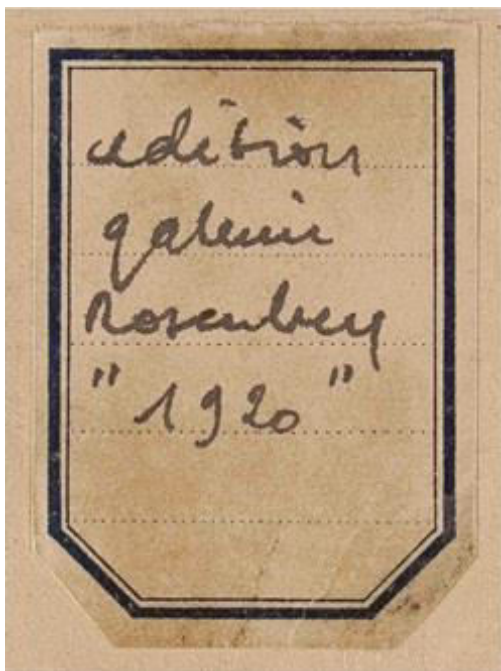 edition
galerie
Rosenberg
" 1920 "